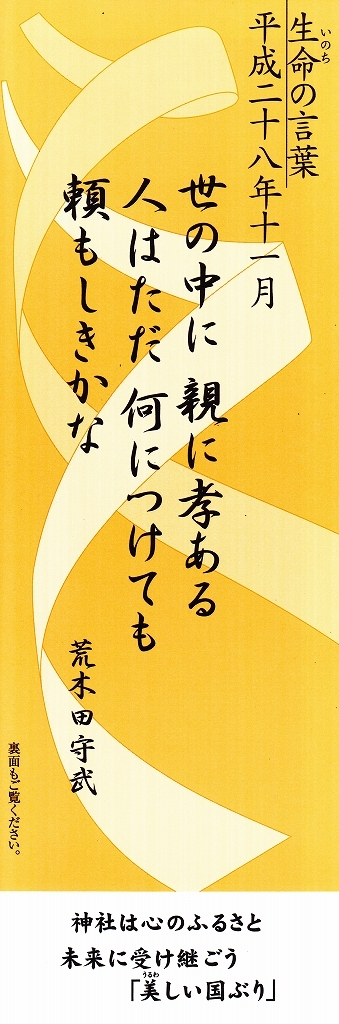 生命の言葉
いのち
平成二十八年十一月
世の中に 親に孝ある
人はただ 何につけても
頼もしきかな
荒木田守武
裏面もご覧ください。
神社は心のふるさと
未来に受け継ごう
うるわ
「美しい国ぶり」